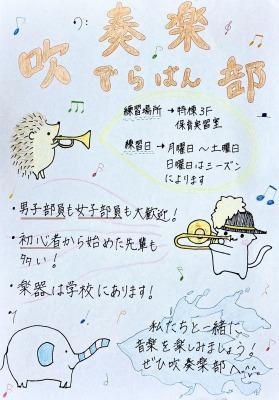 吹奏楽部
でらばん
練習場所 → 特棟3F
保育実習室
練習日 → 月曜日～土曜日
日曜日はシーズン
によります
・男子部員も女子部員も大歓迎！
・初心者から始めた先輩も
多い！
・楽器は学校にあります！
私たちと一緒に
音楽を楽しみましょう！
ぜひ吹奏楽部へ